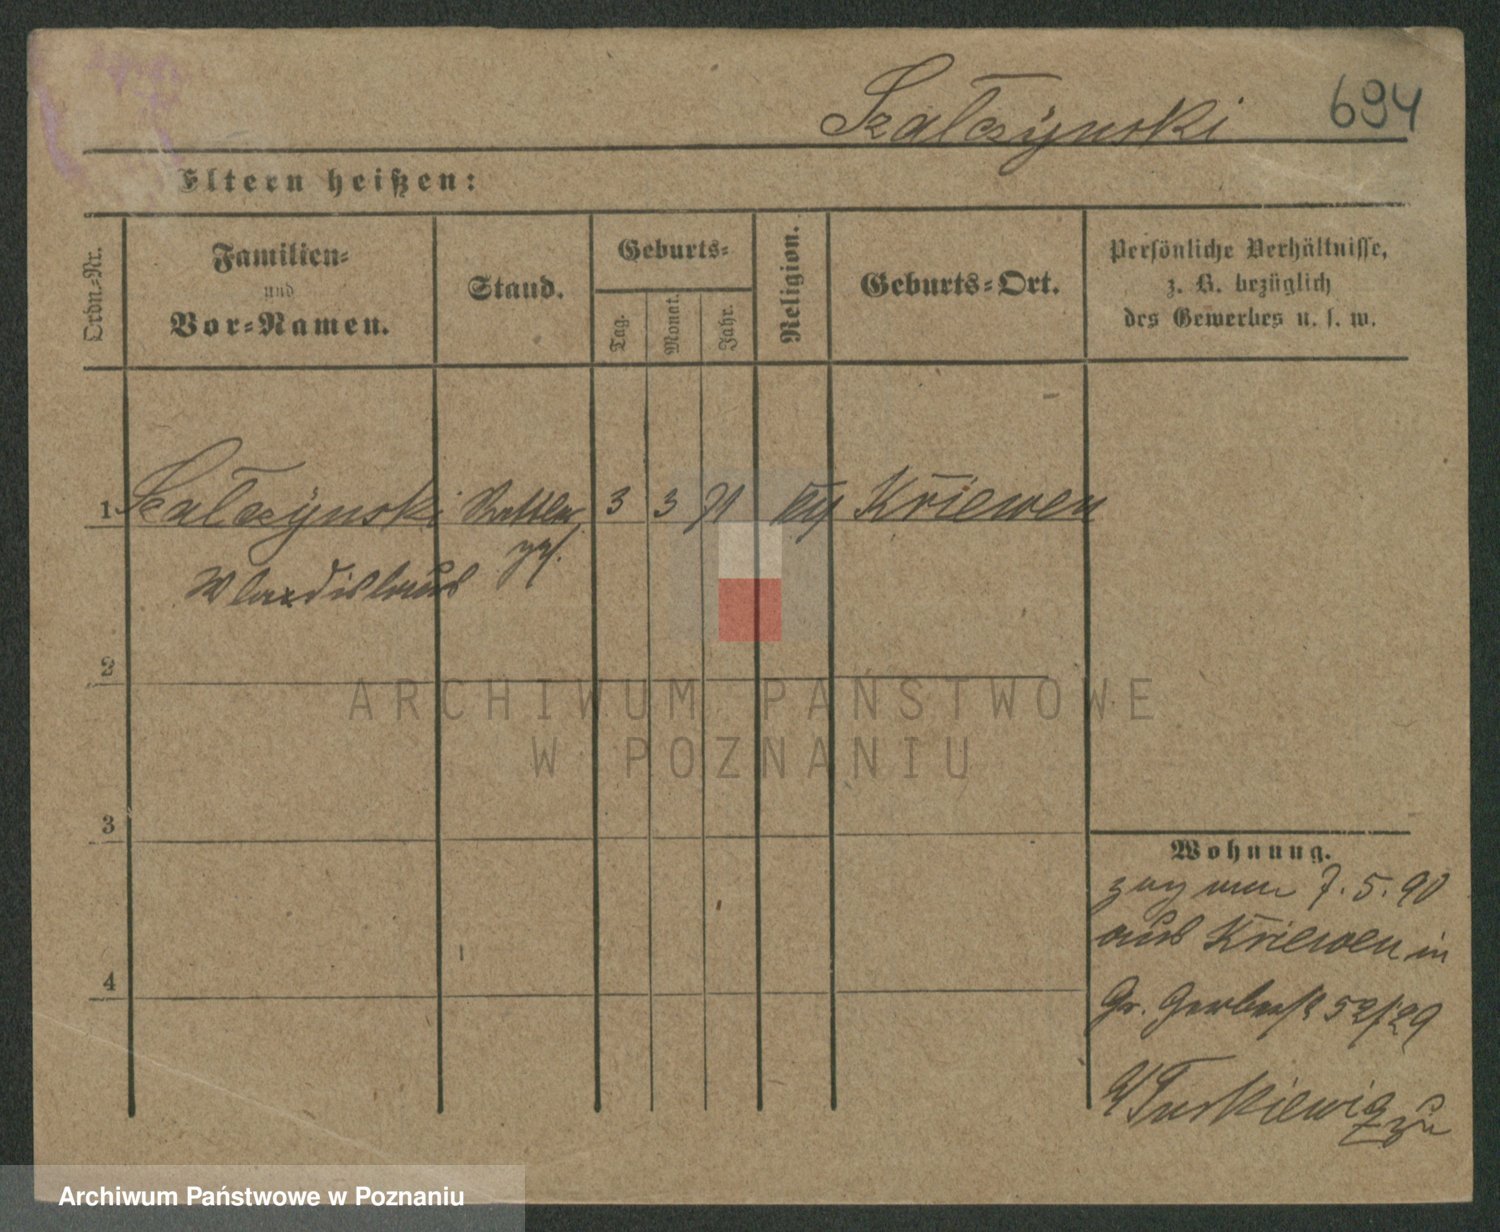 Szalczynski 694
Eltern heißen:
Ordn.-Nr.
Familien-
und
Vor-Namen.
Stand.
Geburts-
Tag.
Monat.
Jahr.
Religion.
Geburts-Ort.
Persönliche Verhältnisse,
z. B. bezüglich
des Gewerbes u. s. w.
1 Szalczynski 3 3 71 Kriewen
Wladislaus
2
ARCHIWUM PAŃSTWOWE
W POZNANIU
3
Wohnung.
7. 5. 90
aus Kriewen in
4
Gr. Gerberst 52/29
Archiwum Państwowe w Poznaniu